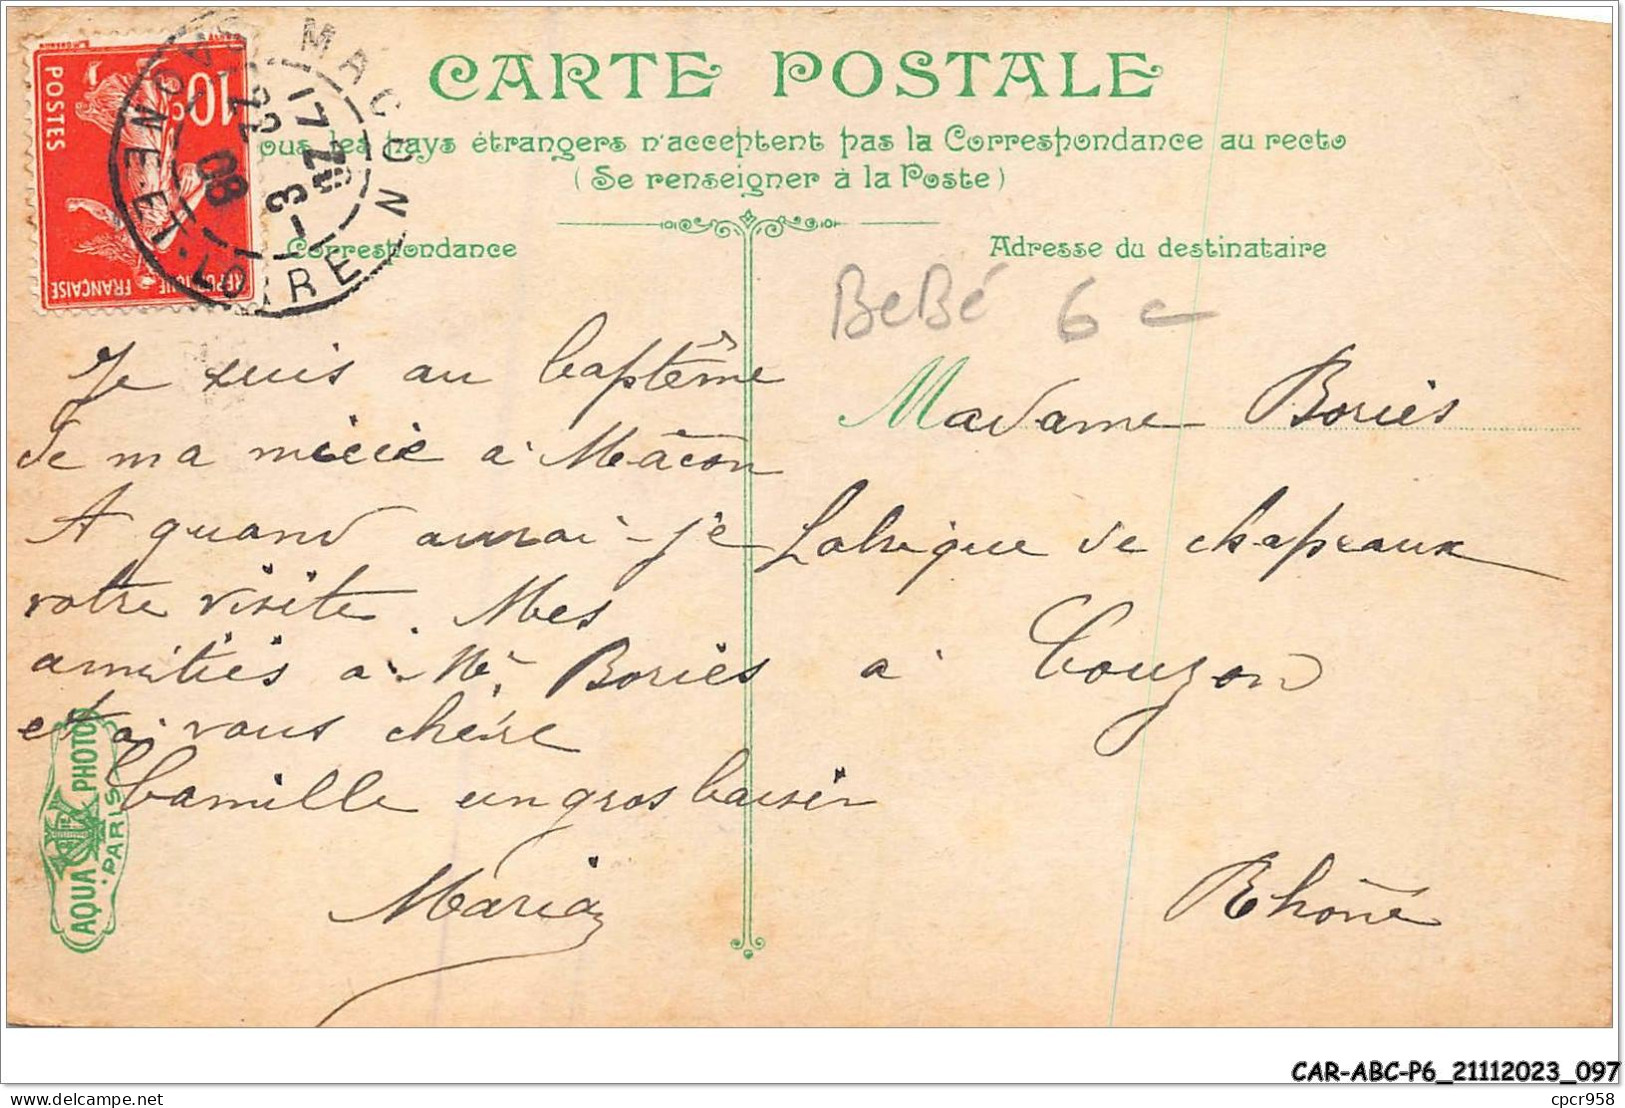 CARTE POSTALE
ous les pays étrangers n'acceptent pas la Correspondance au recto
(Se renseigner à la Poste)
Correspondance
Adresse du destinataire
10c
POSTES
RÉPUBLIQUE FRANÇAISE
MACON
SAONE-ET-LOIRE
17 20
22 - 3
08
BeBé 6 e
Je suis au baptême
de ma nièce à Mâcon
A quand aurai-je
votre visite. Mes
amitiés à Mr. Boriès
et à vous chère
Camille un gros baiser
Maria
Madame Boriès
fabrique de chapeaux
à Couzon
Rhône
AQUA PHOTO
PARIS
CAR-ABC-P6_21112023_097
cpcr958